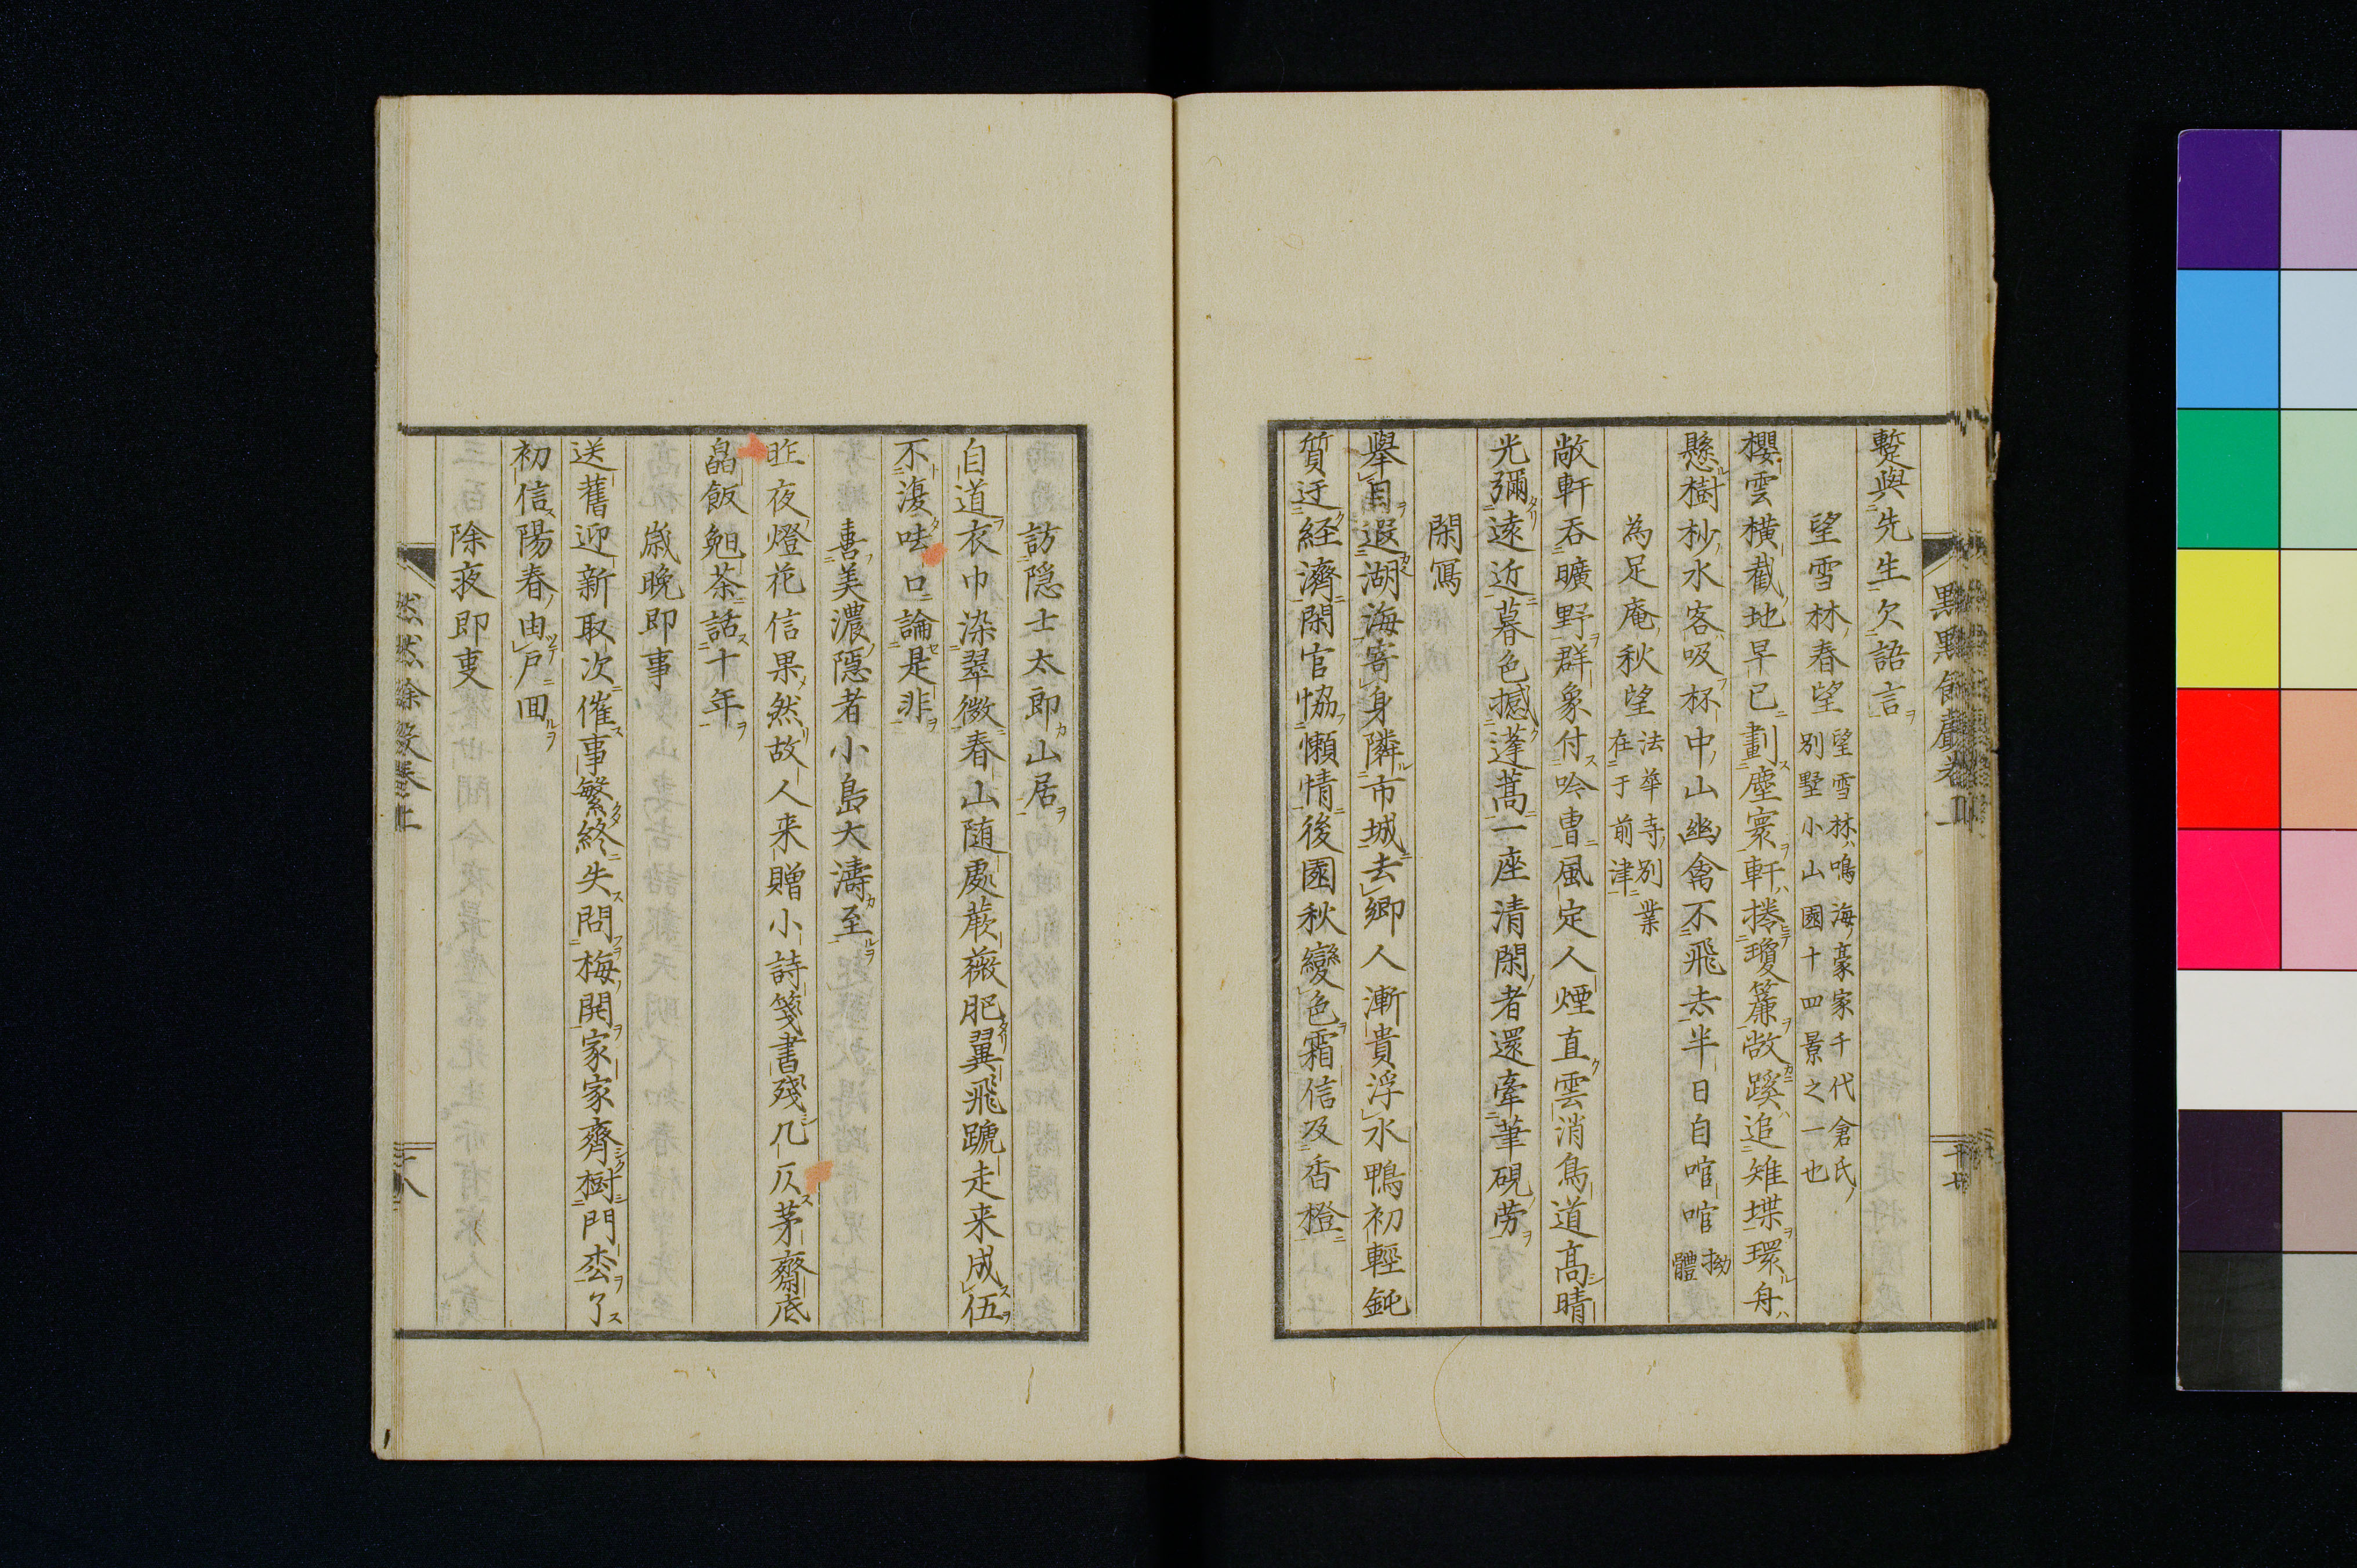 蹔與先生欠語言
望雪林春望 望雪林鳴海豪家千代倉氏
別墅小山園十四景之一也
櫻雲橫截地早已劃塵寰軒捲瓊簾敞蹊追雉堞環舟
懸樹杪水客吸杯中山幽禽不飛去半日自喧喧 拗
體
為足庵秋望 法華寺別業
在于前津
敞軒吞曠野群象付吟曹風定人煙直雲消鳥道高晴
光彌遠近暮色撼蓬蒿一座清閑者還牽筆硯労
閑寫
舉目遐湖海寄身隣市城去鄉人漸貴浮水鴨初輕鈍
質迂経濟閑官恊懶情後園秋變色霜信及香橙
訪隠士太郎山居
自道衣巾染翠微春山随處蕨薇肥翼飛蹏走来成伍
不復呿口論是非
喜美濃隱者小島大濤至
昨夜燈花信果然故人来贈小詩箋書殘几仄茅齋底
皛飯麭茶話十年
歳晩即事
送舊迎新取次催事繁終失問梅開家家齊樹門枩了
初信陽春由戸回
除夜即叓
十八